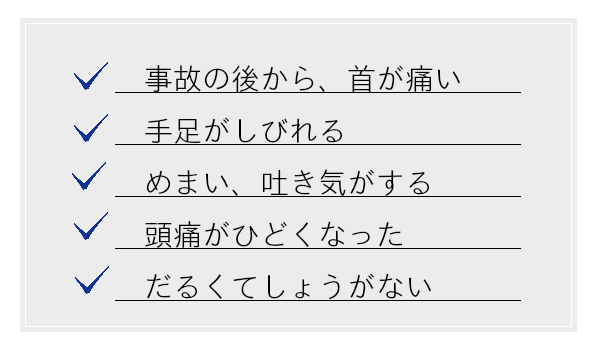 事故の後から、首が痛い
手足がしびれる
めまい、吐き気がする
頭痛がひどくなった
だるくてしょうがない